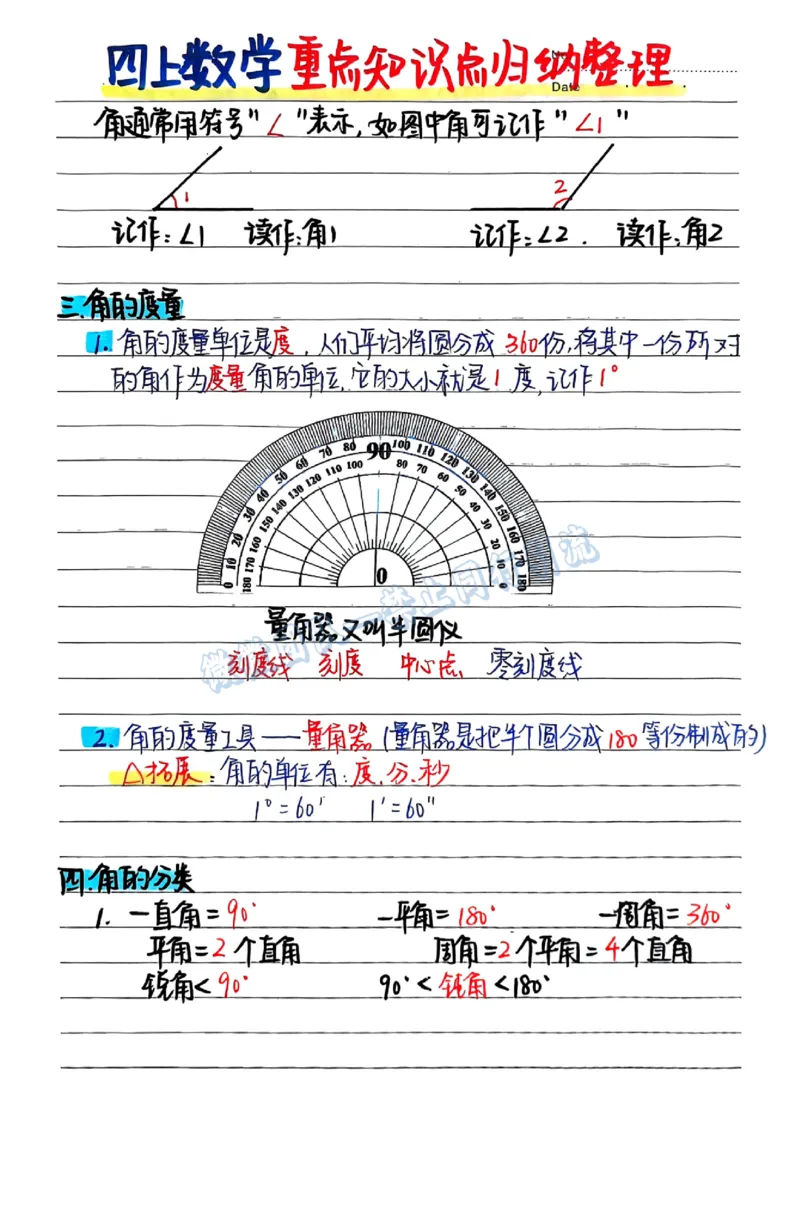 四上数学重点知识点归纳整理
Date
角通常用符号"∠"表示,如图中角可记作"∠1"
1
2
记作:∠1 读作:角1 记作:∠2. 读作:角2
三.角的度量
1. 角的度量单位是度,人们平均将圆分成 360份,将其中一份所对
的角作为度量角的单位,它的大小就是1度,记作1°
0 10 20 30 40 50 60 70 80 90 100 110 120 130 140 150 160 170 180
180 170 160 150 140 130 120 110 100 80 70 60 50 40 30 20 10 0
0
量角器又叫半圆仪
刻度线 刻度 中心点 零刻度线
2. 角的度量工具——量角器(量角器是把半个圆分成180等份制成的)
△拓展:角的单位有:度.分.秒
1°=60′ 1′=60″
四.角的分类
1. 一直角=90° 一平角=180° 一周角=360°
平角=2个直角 周角=2个平角=4个直角
锐角<90° 90°<钝角<180°